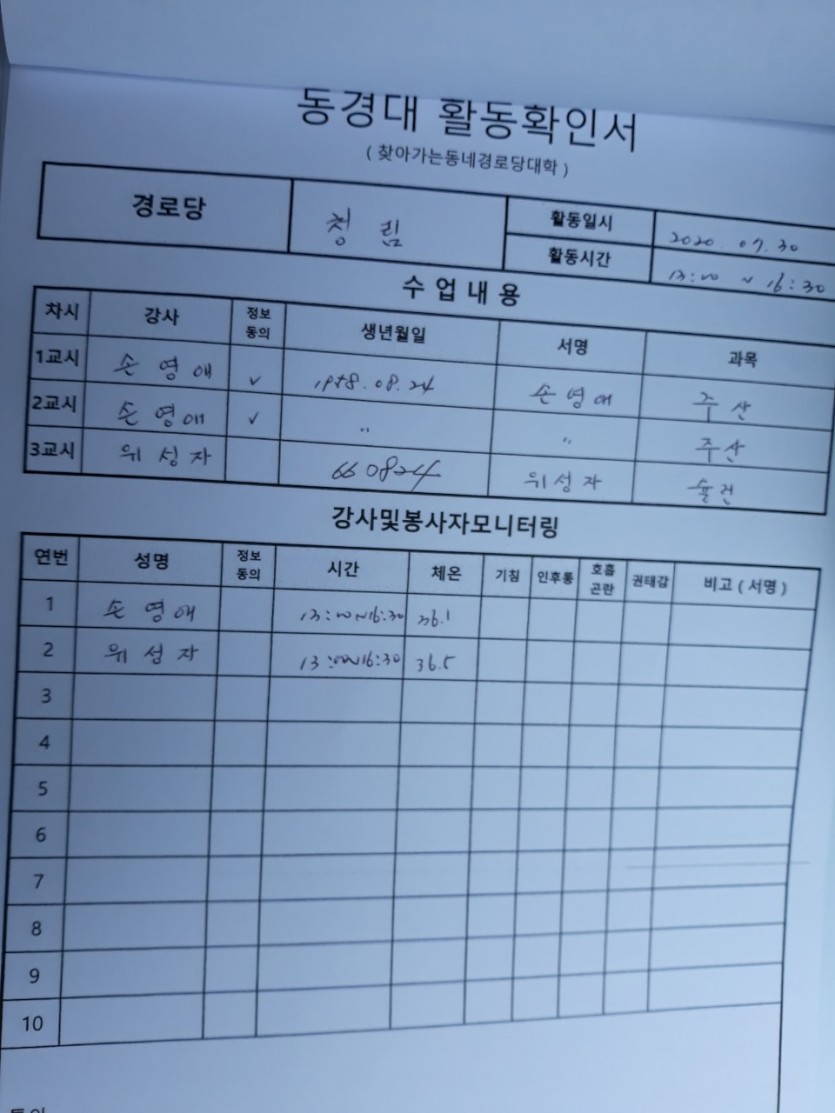 동경대 활동확인서
( 찾아가는동네경로당대학 )
경로당 청 림 활동일시 2020. 07. 30
활동시간 13:00 ~ 16:30
수 업 내 용
차시 강사 정보동의 생년월일 서명 과목
1교시 손 영 애 ✓ 1958.08.24 손 영 애 주 산
2교시 손 영 애 ✓ " " 주 산
3교시 위 성 자 660824 위 성 자
강사및봉사자모니터링
연번 성명 정보동의 시간 체온 기침 인후통 호흡곤란 권태감 비고 ( 서명 )
1 손 영 애 13:00~16:30 36.1
2 위 성 자 13:00~16:30 36.5
3
4
5
6
7
8
9
10